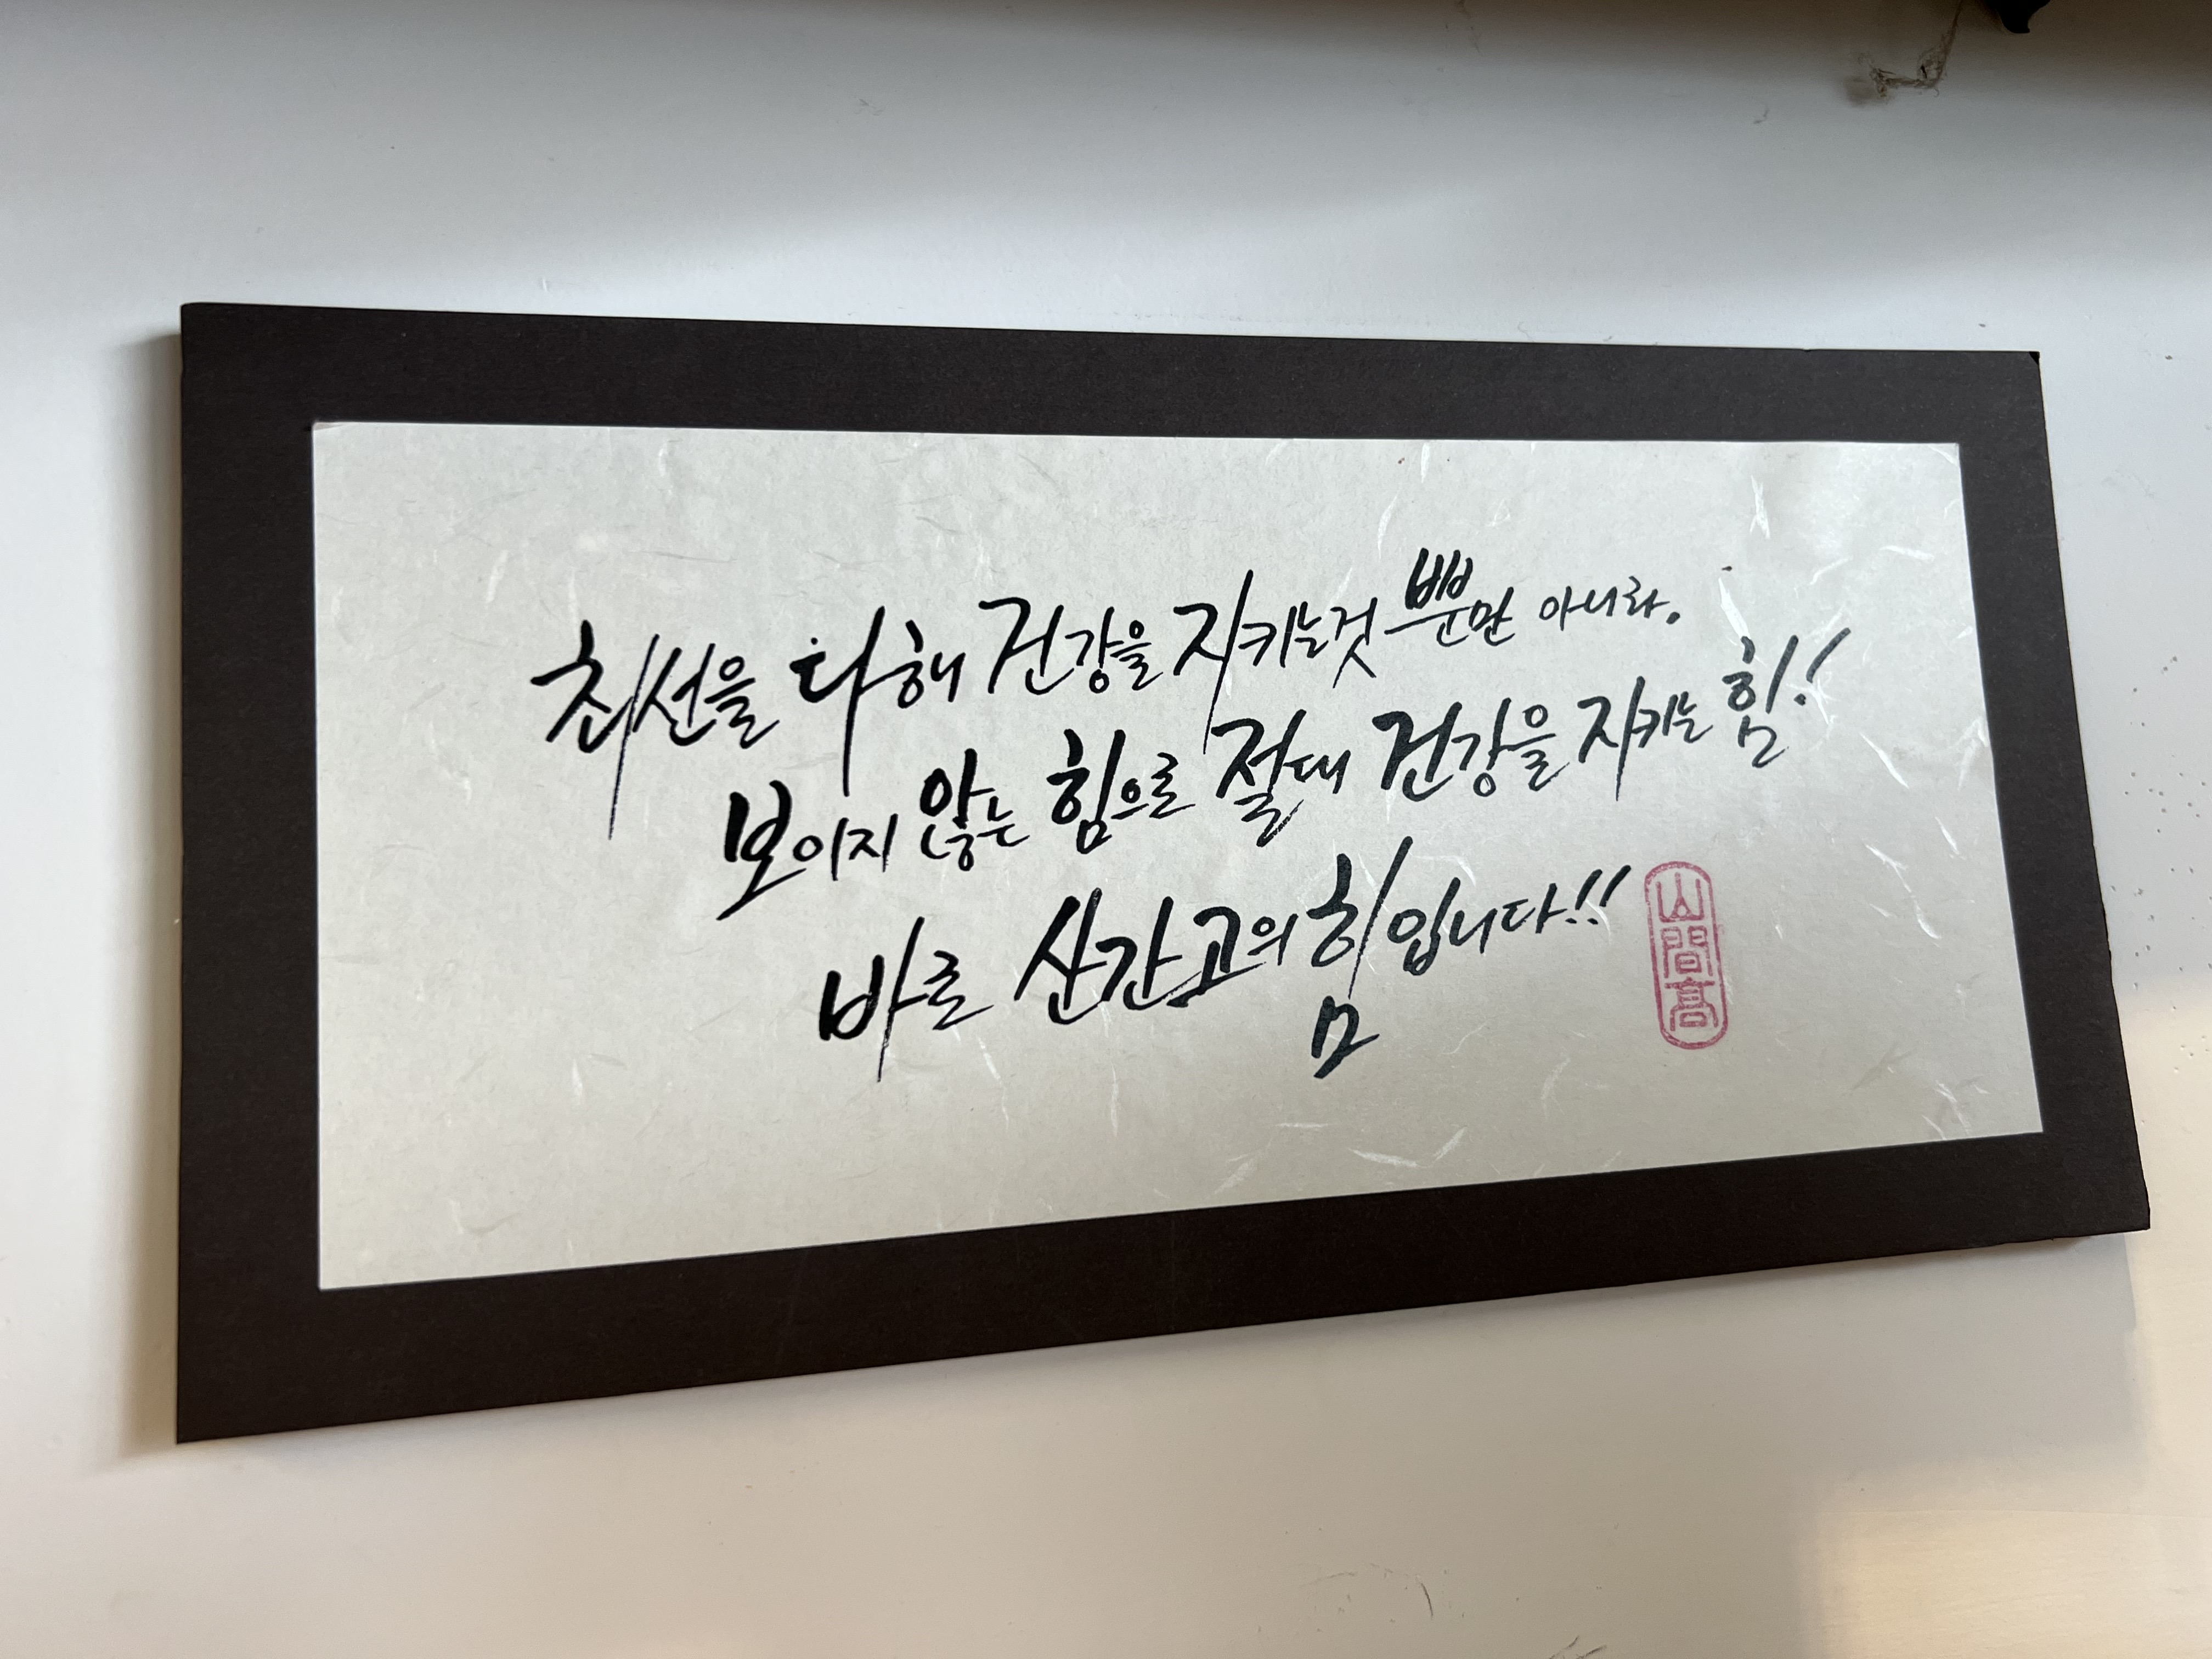 최선을 다해 건강을 지키는것 뿐만 아니라.
보이지 않는 힘으로 절대 건강을 지키는 힘!
바로 산간고의 힘입니다!!
山間高